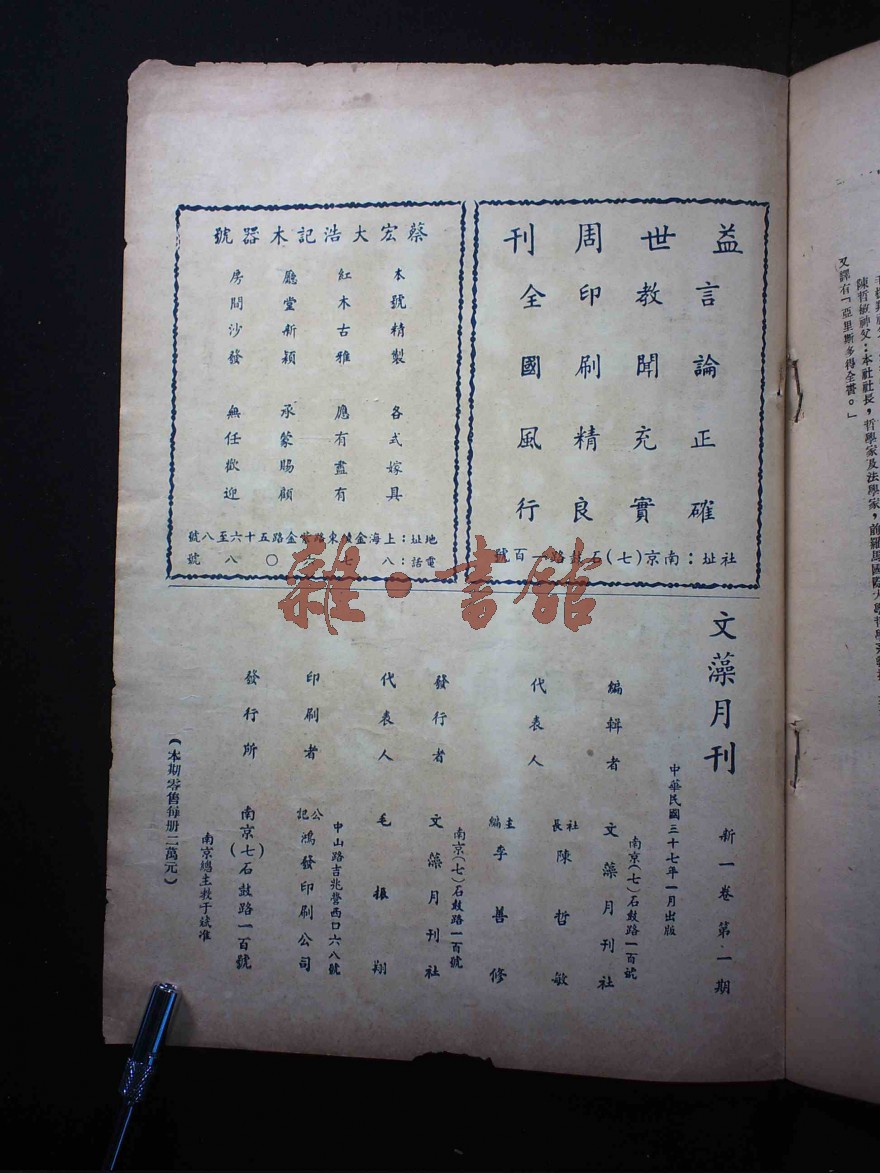 益世周刊
言論正確
教聞充實
印刷精良
全國風行
社址：南京(七)石鼓路一百號
蔡宏大浩記木器號
本號精製 各式嫁具
紅木古雅 應有盡有
廳堂新穎 承蒙賜顧
房間沙發 無任歡迎
地址：上海金陵東路紫金路五十六至八號
電話：八七 〇八號
雜·書館
文藻月刊 新一卷第一期
中華民國三十七年一月出版
編輯者 文藻月刊社
南京(七)石鼓路一百號
代表人 社長 陳哲敏
主編 李善修
發行者 文藻月刊社
南京(七)石鼓路一百號
代表人 毛振翔
印刷者 公記鴻發印刷公司
中山路吉兆營西口六八號
發行所 南京(七)石鼓路一百號
南京總主教于斌准
(本期零售每册二萬元)
陳哲敏神父：本社社長，哲學家及法學家，前羅馬國際大學哲學
又譯有「亞里斯多得全書。」